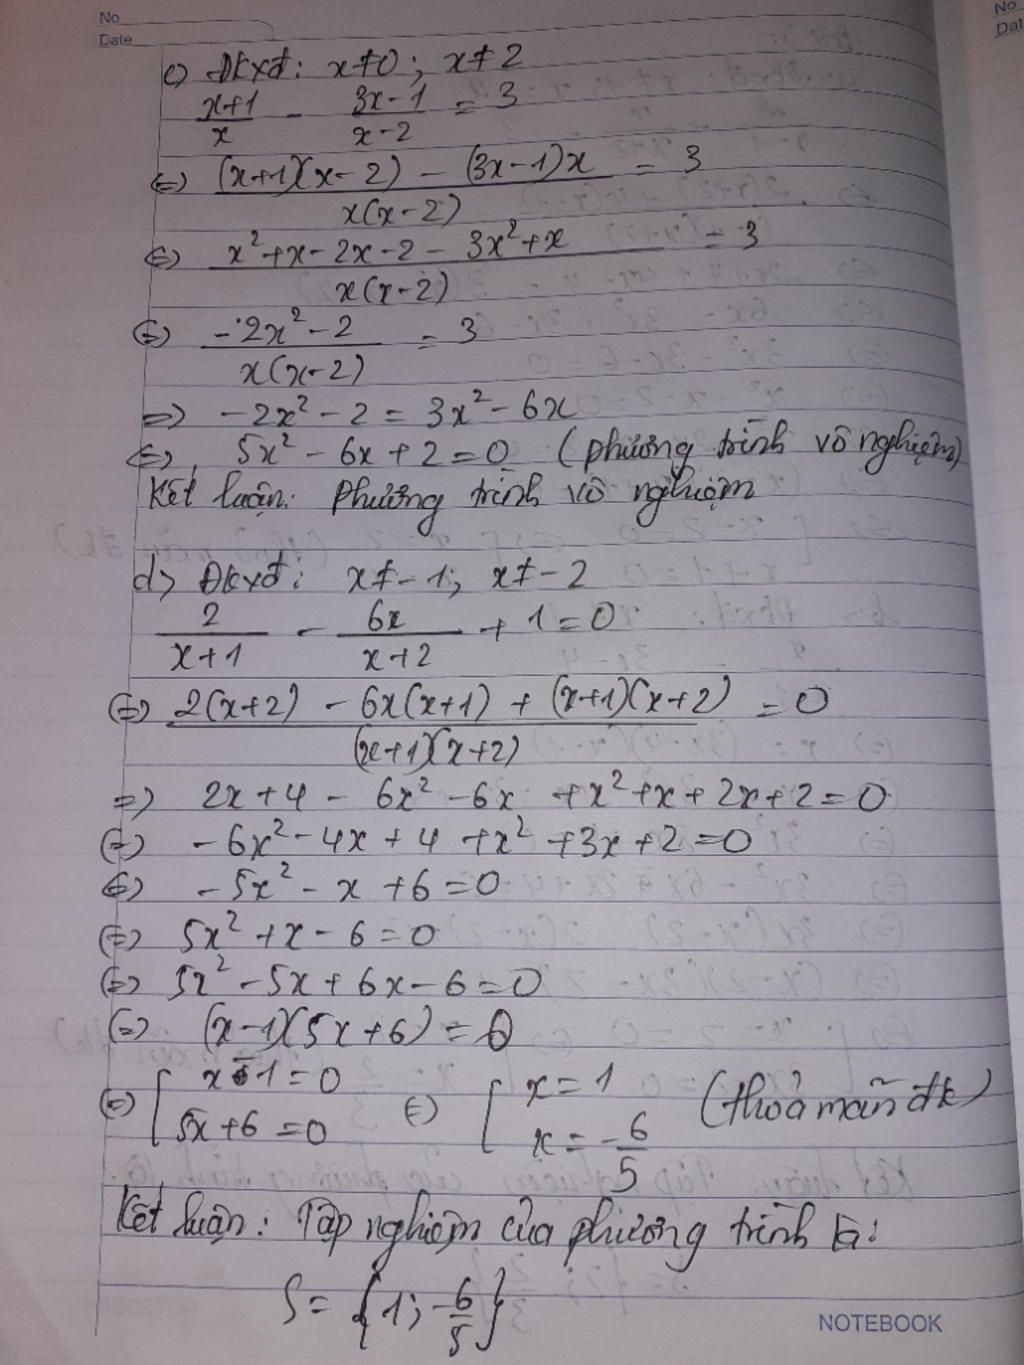 No
Date
c) Đkxđ: x≠0; x≠2
\frac{x+1}{x} - \frac{3x-1}{x-2} = 3
⇔) \frac{(x+1)(x-2) - (3x-1)x}{x(x-2)} = 3
⇔) \frac{x²+x-2x-2-3x²+x}{x(x-2)} = 3
⇔) \frac{-2x²-2}{x(x-2)} = 3
=) -2x²-2 = 3x²-6x
⇔) 5x²-6x+2=0 (phương trình vô nghiệm)
Kết luận: phương trình vô nghiệm
d) Đkxđ: x≠-1; x≠-2
\frac{2}{x+1} - \frac{6x}{x+2} + 1 = 0
⇔) \frac{2(x+2) - 6x(x+1) + (x+1)(x+2)}{(x+1)(x+2)} = 0
=) 2x+4 - 6x² -6x +x²+x+2x+2=0
⇔) -6x²-4x+4 +x² +3x+2=0
⇔) -5x² - x +6=0
⇔) 5x²+x-6=0
⇔) 5x²-5x+6x-6=0
⇔) (x-1)(5x+6)=0
⇔) [ x-1=0 ⇔) [ x=1 (thỏa mãn đk)
5x+6=0 x=-\frac{6}{5}
Kết luận: Tập nghiệm của phương trình là:
S = {1; -\frac{6}{5}}
NOTEBOOK
No
Dat